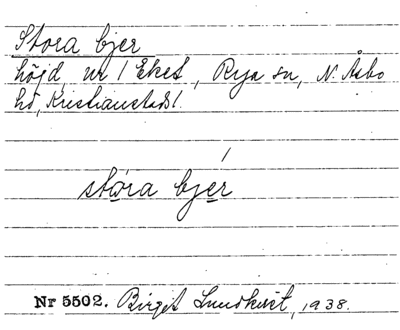 Stora bjer
höjd, nr 1 Eket, Rya sn, N. Åsbo
hd, Kristianstads l.
stora bjér
Nr 5502. Birget Lundkvist, 1938.